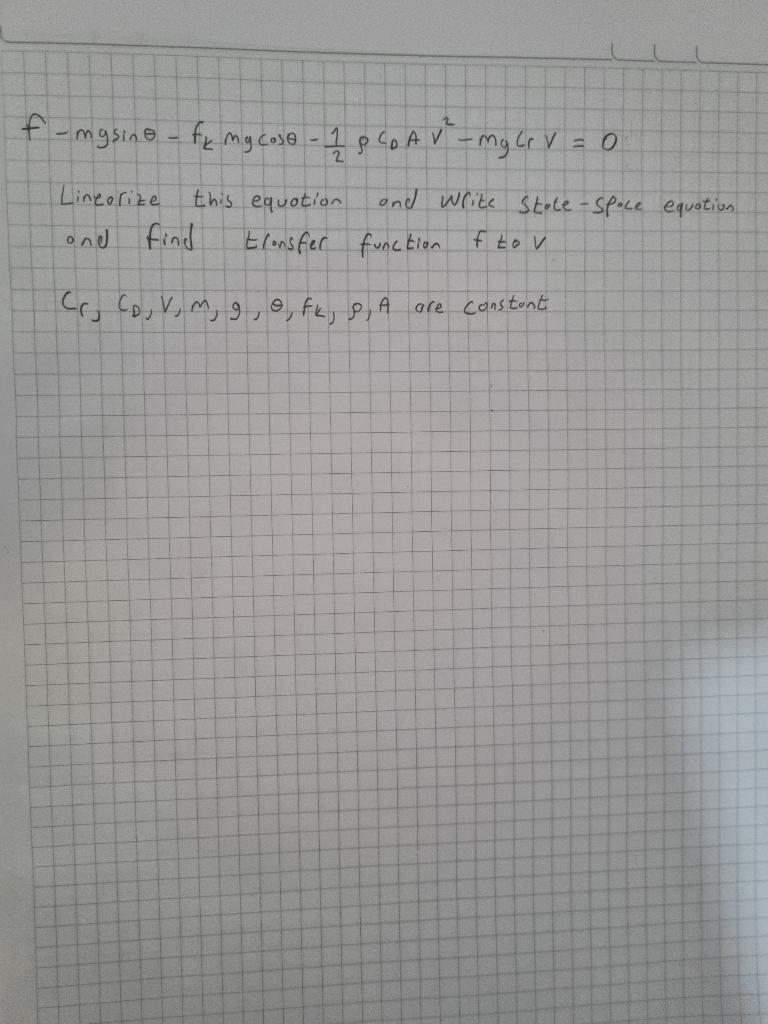 f - mg sin θ - fₖ mg cos θ - 1/2 ρ C_D A V² - mg Cr V = 0
Lineorize this equation and write state-space equation
and find transfer function f to v
Cr, C_D, V, m, g, θ, fₖ, ρ, A are constant